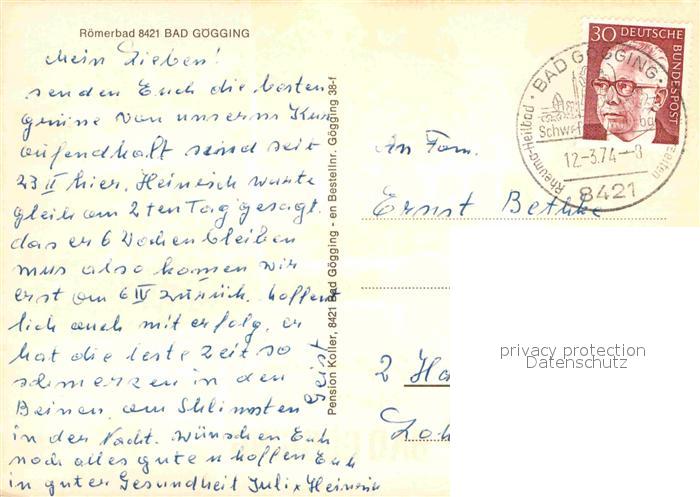 Römerbad 8421 BAD GÖGGING
Mein Lieben!
senden Euch die besten
grüisse von unserm Kur
aufendhalt send seit
23 II hier. Heinrich wurte
gleih am 2ten Tag gesagt.
das er 6 Wochen bleiben
mus also komen wir
erst am 6 IV zurück. hoffent
lich auch mit erfolg. er
hat die leste Zeit so
schmerzen in den
Beinen. am Schlimsten
in der Nacht. wünschen Euh
noch alles gute u hoffen Euh
in guter Gesundheit Juli x Heinrich
Pension Koller, 8421 Bad Gögging - en Bestellnr. Gögging 38-f
30 DEUTSCHE BUNDESPOST
BAD GÖGGING
Rheuma-Heilbad
12.-3.74-8
8421
An Fam.
Ernst Bethke
2
privacy protection
Datenschutz